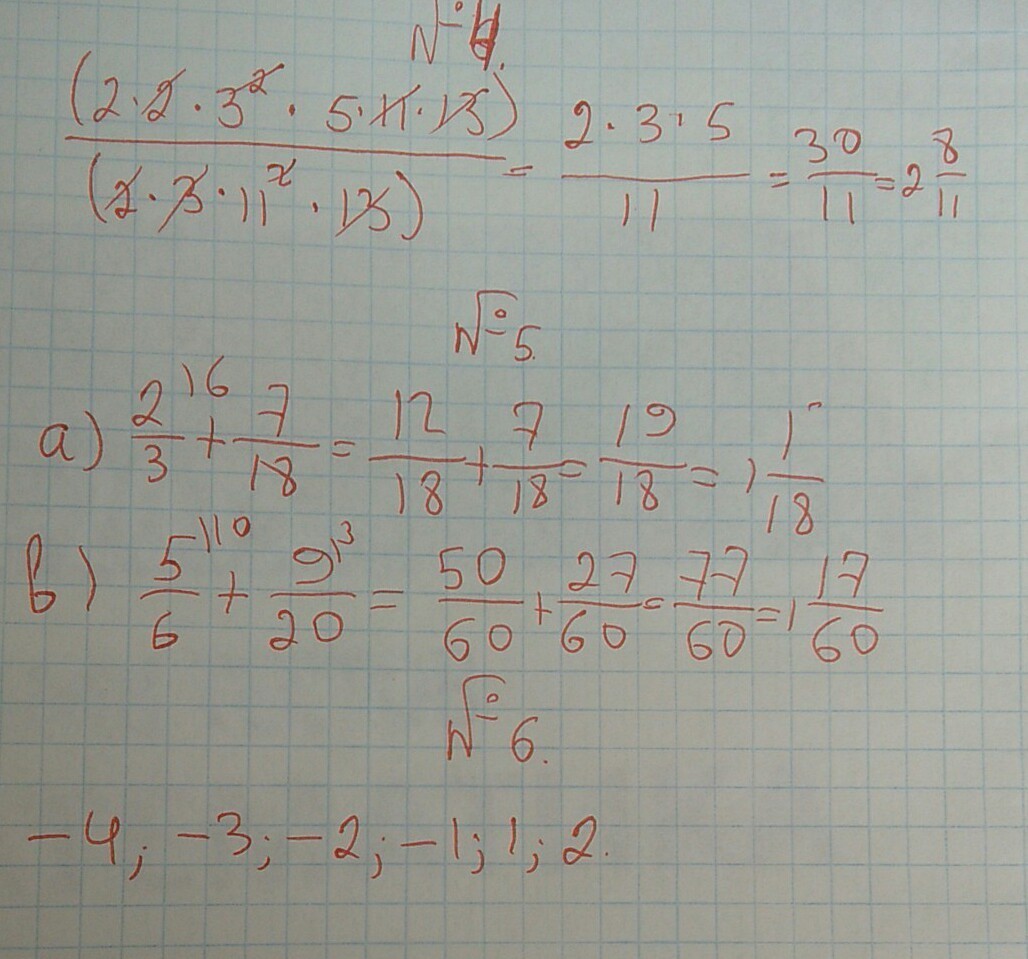 №4.
(2·2·3²·5·11·13)/(2·3·11²·13) = (2·3·5)/11 = 30/11 = 2 8/11
№5.
а) 2/3 ⁾⁶ + 7/18 = 12/18 + 7/18 = 19/18 = 1 1/18
в) 5/6 ⁾¹⁰ + 9/20 ⁾³ = 50/60 + 27/60 = 77/60 = 1 17/60
№6.
-4; -3; -2; -1; 1; 2.